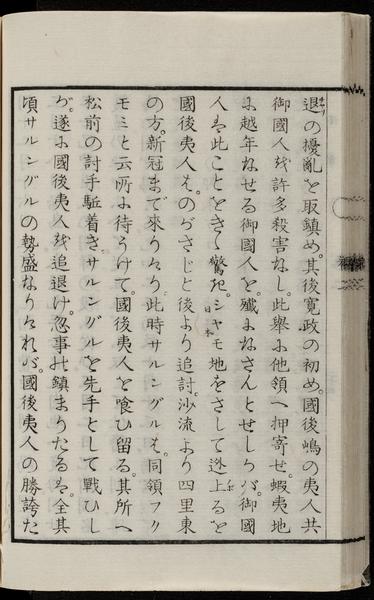 退の擾亂を取鎮め。其後寛政の初め。國後嶋の夷人共
御國人を許多殺害なし。此擧に他領へ押寄せ。蝦夷地
に越年なせる御國人を殱になさんとせしらバ。御國
人は此ことをきゝ驚起。シャモ地をさして迯上るを
日本
國後夷人は。のがさじと後より追討。沙流より四里東
の方。新冠まで來りたり。此時サルングルは。同領フリ
モミと云所に待うけて。國後夷人を喰ひ留る。其所へ
松前の討手駈着き。サルングルを先手として戰ひし
が。遂に國後夷人を追退け。忽事は鎮まりたるは。全其
頃サルングルの勢盛なりければ。國後夷人の勝誇た